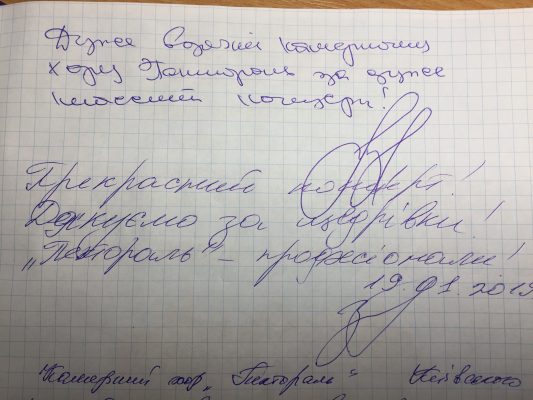 Дуже вдячній камерному
хору Пектораль за дуже
класний концерт!
Прекрасний концерт!
Дякуємо за щедрівки!
„Пектораль" – професіонали!
19.01.2019
Камерний хор „Пектораль" Київського